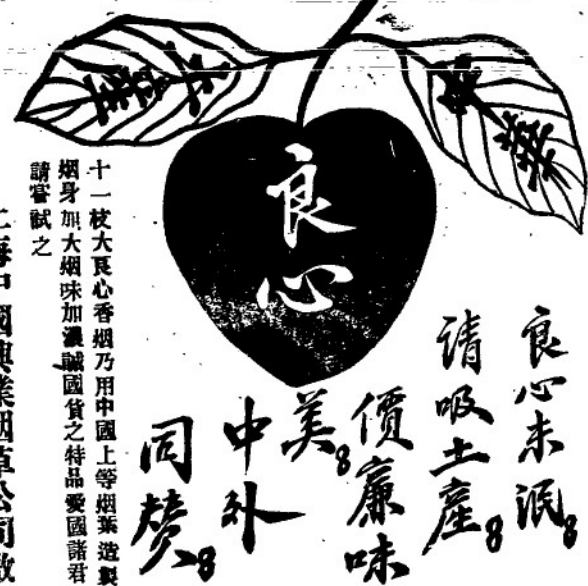 良心
良心未泯
請吸土產
價廉味
美
中外
同贊
十一枝大良心香烟乃用中國上等烟葉造製
烟身加大烟味加濃誠國貨之特品愛國諸君
請嘗試之
上海中國興業烟草公司